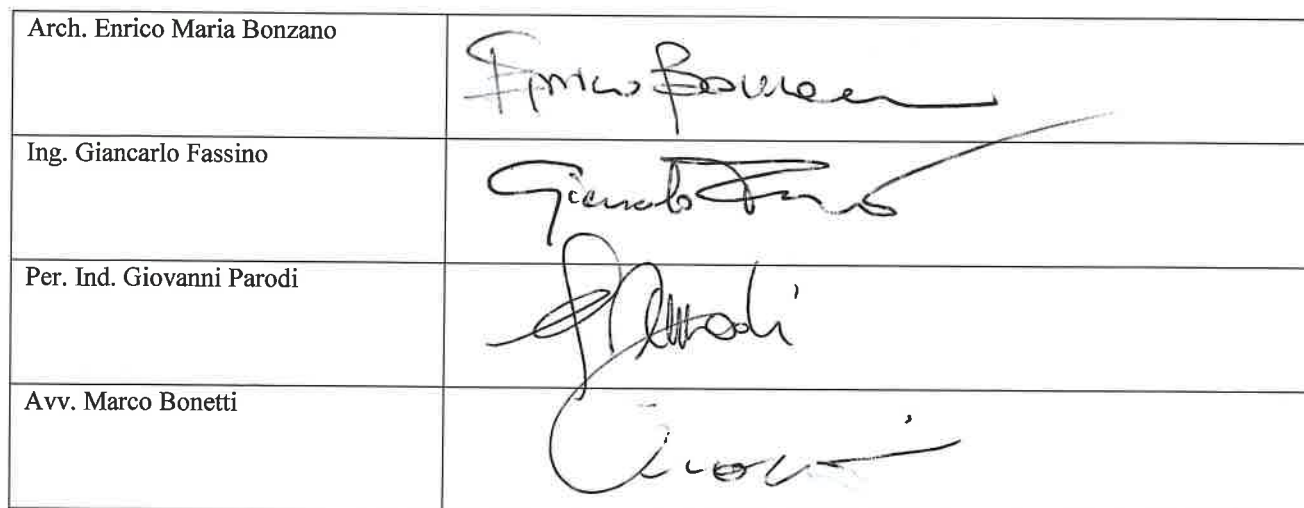 Arch. Enrico Maria Bonzano
Enrico
Ing. Giancarlo Fassino
Giancarlo
Per. Ind. Giovanni Parodi
Parodi
Avv. Marco Bonetti